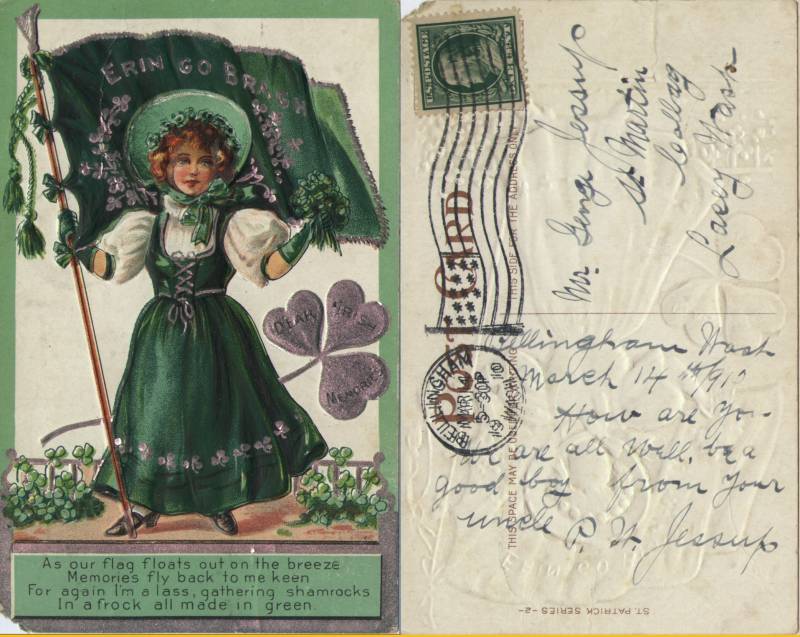 ERIN GO BRAGH
DEAR IRISH
MEMORIES
As our flag floats out on the breeze
Memories fly back to me keen
For again I'm a lass, gathering shamrocks
In a frock all made in green.
U.S. POSTAGE
ONE CENT
POST CARD
THIS SIDE FOR THE ADDRESS
THIS SPACE MAY BE USED FOR WRITING
BELLINGHAM
MAR 14
5-30P
WASH.
Mr. George Jessup
St Martin
Colleg
Lacey Wash
Bellingham Wash
March 14th 1910
How are you
We are all well, be a
good boy from your
uncle P. H. Jessup
ST. PATRICK SERIES -2-